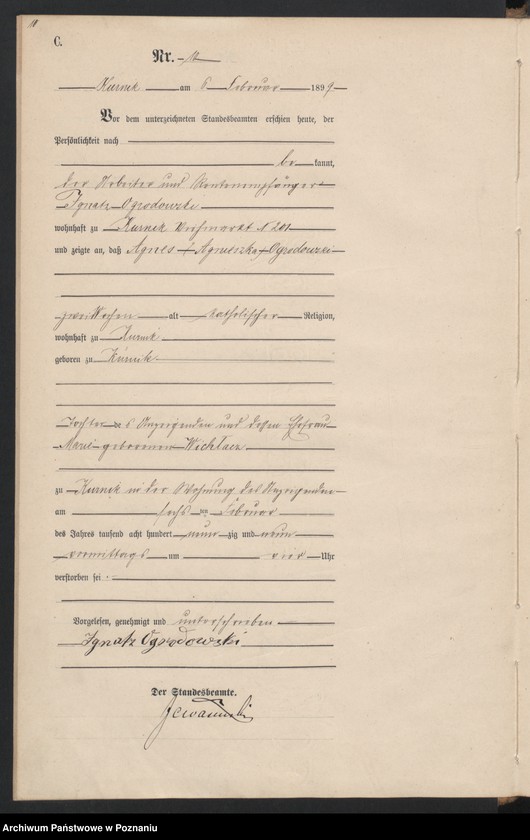 11
C.
Nr. 11
Kurnik am 6 Februar 1899
Vor dem unterzeichneten Standesbeamten erschien heute, der
Persönlichkeit nach
be kannt,
der Arbeiter und Rentenempfänger
Ignatz Ogrodowski
wohnhaft zu Kurnik Viehmarkt N 201
und zeigte an, daß Agnes (Agnieszka) Ogrodowski
zwei Wochen alt katholischer Religion,
wohnhaft zu Kurnik
geboren zu Kurnik
Tochter des Anzeigenden und dessen Ehefrau
Marie geborenen Wichłacz
zu Kurnik in der Wohnung des Anzeigenden
am sechs ten Februar
des Jahres tausend acht hundert neun zig und neun
vormittags um vier Uhr
verstorben sei
Vorgelesen, genehmigt und unterschrieben
Ignatz Ogrodowski
Der Standesbeamte.
Archiwum Państwowe w Poznaniu